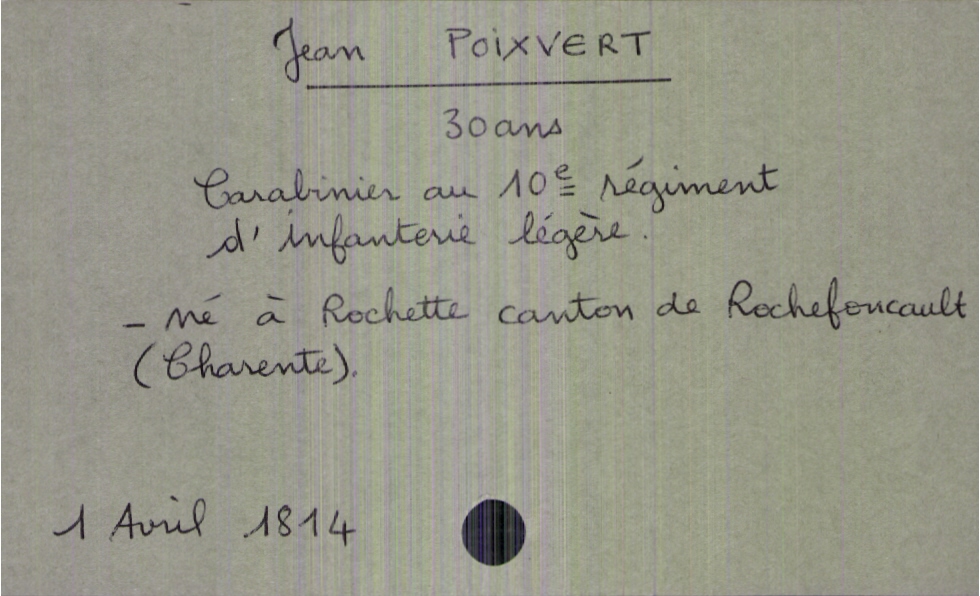 Jean POIXVERT
30 ans
Carabinier au 10e régiment
d'infanterie légère.
- né à Rochette canton de Rochefoucault
(Charente).
1 Avril 1814